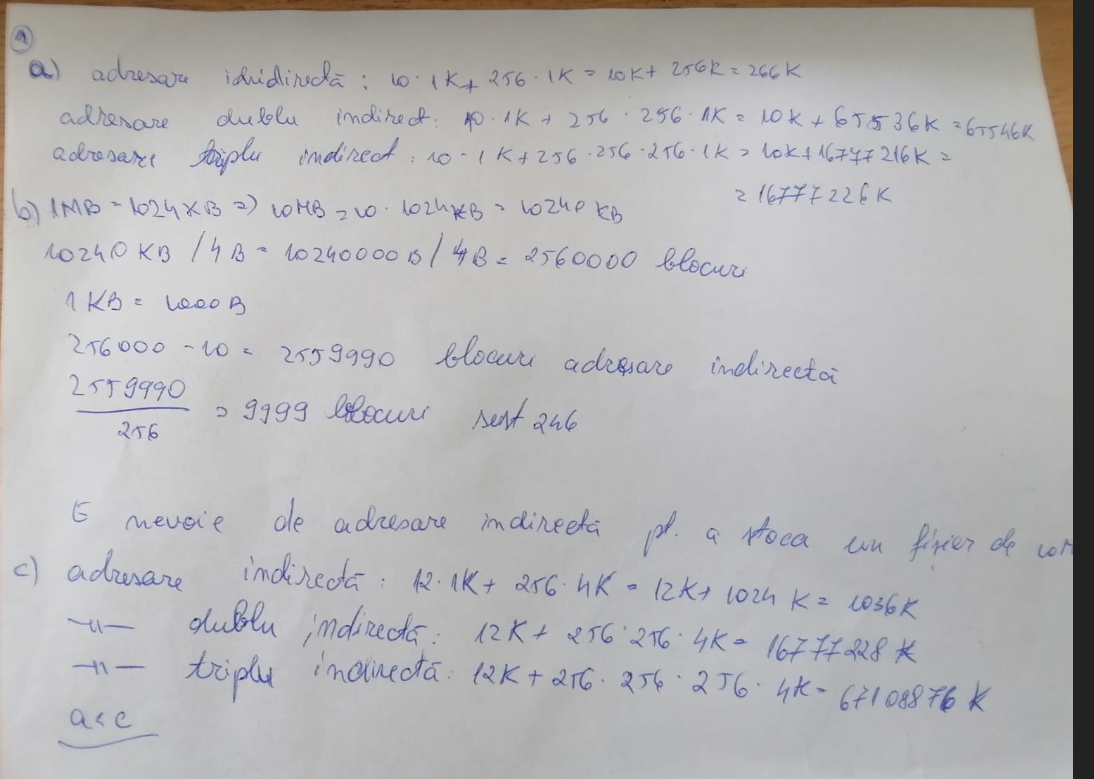 1
a) adresare ididirectă : 10 · 1K + 256 · 1K = 10K + 256K = 266K
adresare dublu indirect : 10 · 1K + 256 · 256 · 1K = 10K + 65536K = 65546K
adresare triplu indirect : 10 · 1K + 256 · 256 · 256 · 1K = 10K + 16777216K =
= 16777226K
b) 1MB = 1024KB => 10MB = 10 · 1024KB = 10240 KB
10240 KB / 4B = 10240000B / 4B = 2560000 blocuri
1 KB = 1000B
256000 - 10 = 2559990 blocuri adresare indirectă
2559990
256
= 9999 blocuri rest 246
E nevoie de adresare indirectă pt. a stoca un fișier de 10M
c) adresare indirectă : 12 · 1K + 256 · 4K = 12K + 1024 K = 1036K
—"— dublu indirectă : 12K + 256 · 256 · 4K = 16777228 K
—"— triplu indirectă : 12K + 256 · 256 · 256 · 4K = 67108876 K
a < c